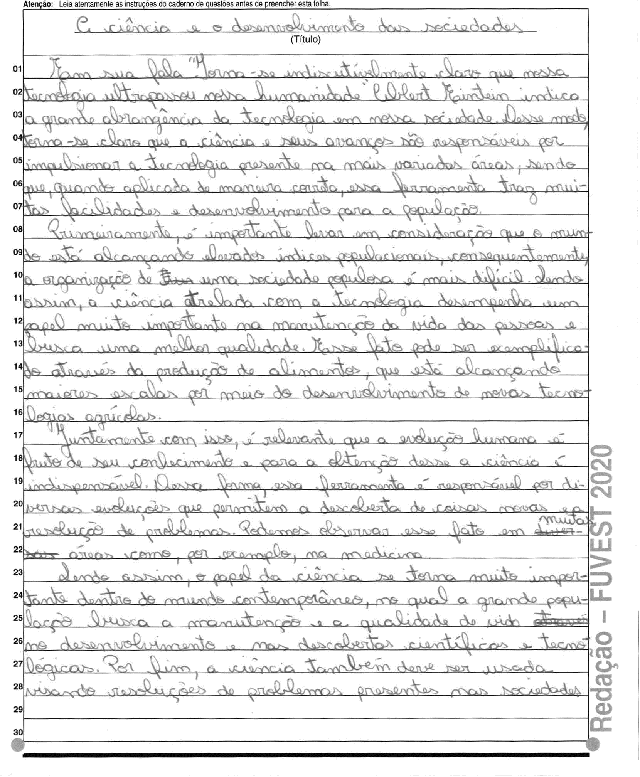 Atenção: Leia atentamente as instruções do caderno de questões antes de preencher esta folha.
A ciência e o desenvolvimento das sociedades
(Título)
01 Em sua fala "Torna-se indiscutivelmente claro que nossa
02 tecnologia ultrapassou nossa humanidade" Albert Einstein indica
03 a grande abrangência da tecnologia em nossa sociedade. Desse modo,
04 torna-se claro que a ciência e seus avanços são responsáveis por
05 impulsionar a tecnologia presente na mais variadas áreas, sendo
06 que, quando aplicada de maneira correta, essa ferramenta traz mui-
07 tas facilidades e desenvolvimento para a população.
08 Primeiramente, é importante levar em consideração que o mun-
09 do está alcançando elevados índices populacionais, consequentemente,
10 a organização de uma sociedade populosa é mais difícil. Sendo
11 assim, a ciência atrelada com a tecnologia desempenha um
12 papel muito importante na manutenção da vida das pessoas e
13 busca uma melhor qualidade. Esse fato pode ser exemplifica-
14 do através da produção de alimentos, que está alcançando
15 maiores escalas por meio do desenvolvimento de novas tecno-
16 logias agrícolas.
17 Juntamente com isso, é relevante que a evolução humana é
18 fruto de seu conhecimento e para a obtenção desse a ciência é
19 indispensável. Dessa forma, essa ferramenta é responsável por di-
20 versas evoluções que permitem a descoberta de coisas novas e
21 resolução de problemas. Podemos observar esse fato em muitas
22 áreas como, por exemplo, na medicina.
23 Sendo assim, o papel da ciência se torna muito impor-
24 tante dentro do mundo contemporâneo, no qual a grande popu-
25 lação busca a manutenção e a qualidade de vida
26 no desenvolvimento e nas descobertas científicas e tecno-
27 lógicas. Por fim, a ciência também deve ser usada
28 visando resoluções de problemas presentes nas sociedades
29
30
Redação – FUVEST 2020